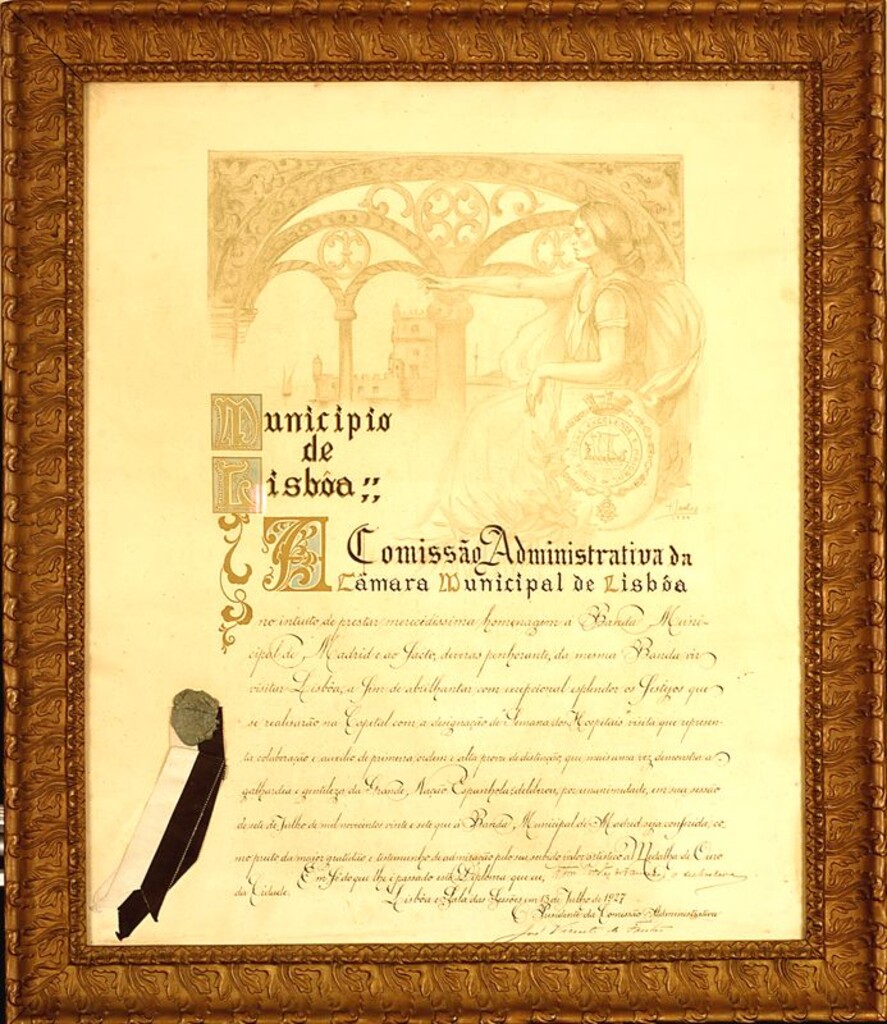 Municipio
de
Lisbôa ;;
A Comissão Administrativa da
Câmara Municipal de Lisbôa
no intuito de prestar merecidissima homenagem á Banda Muni-
cipal de Madrid e ao facto, deveras penhorante, da mesma Banda vir
visitar Lisbôa, a fim de abrilhantar com excepcional esplendor os festejos que
se realisarão na Capital com a designação de Semana dos Hospitais visita que represen-
ta colaboração e auxilio de primeira ordem e alta prova de distinção, que mais uma vez demonstra a
galhardia e gentileza da Grande Nação Espanhola: deliberou, por unanimidade, em sua sessão
de sete de Julho de mil novecientos vinte e sete que á Banda Municipal de Madrid seja conferida, co-
mo preito da maior gratidão e testimunho de admiração pelo seu subido valor artistico a Medalha de Ouro
da Cidade. Em fé do que lhe é passado este Diploma que eu,
Lisbôa e Sala das Sessões em 13 de Julho de 1927
O Presidente da Comissão Administrativa
José Vicente de Freitas